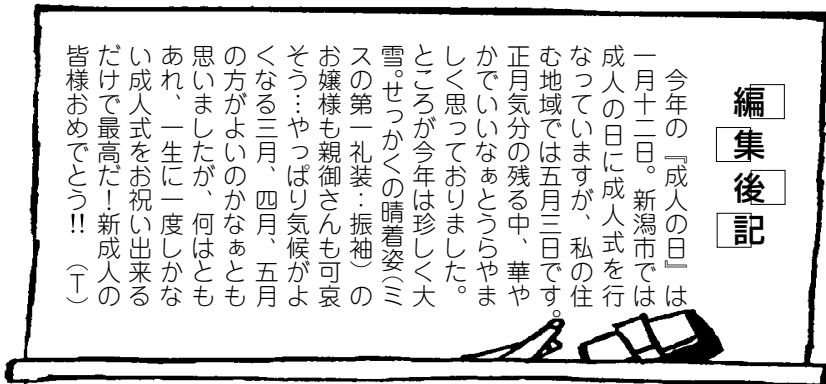 編集後記
今年の『成人の日』は
一月十二日。新潟市では
成人の日に成人式を行
なっていますが、私の住
む地域では五月三日です。
正月気分の残る中、華や
かでいいなぁとうらやま
しく思っておりました。
ところが今年は珍しく大
雪。せっかくの晴着姿(ミ
スの第一礼装:振袖)の
お嬢様も親御さんも可哀
そう…やっぱり気候がよ
くなる三月、四月、五月
の方がよいのかなぁとも
思いましたが、何はとも
あれ、一生に一度しかな
い成人式をお祝い出来る
だけで最高だ！新成人の
皆様おめでとう!! (T)